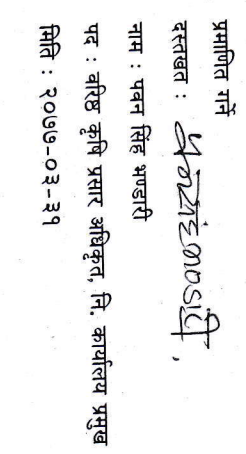 प्रमाणित गर्ने
दस्तखत :
नाम : पवन सिंह भण्डारी
पद : वरिष्ठ कृषि प्रसार अधिकृत, नि. कार्यालय प्रमुख
मिति : २०७७-०३-३१